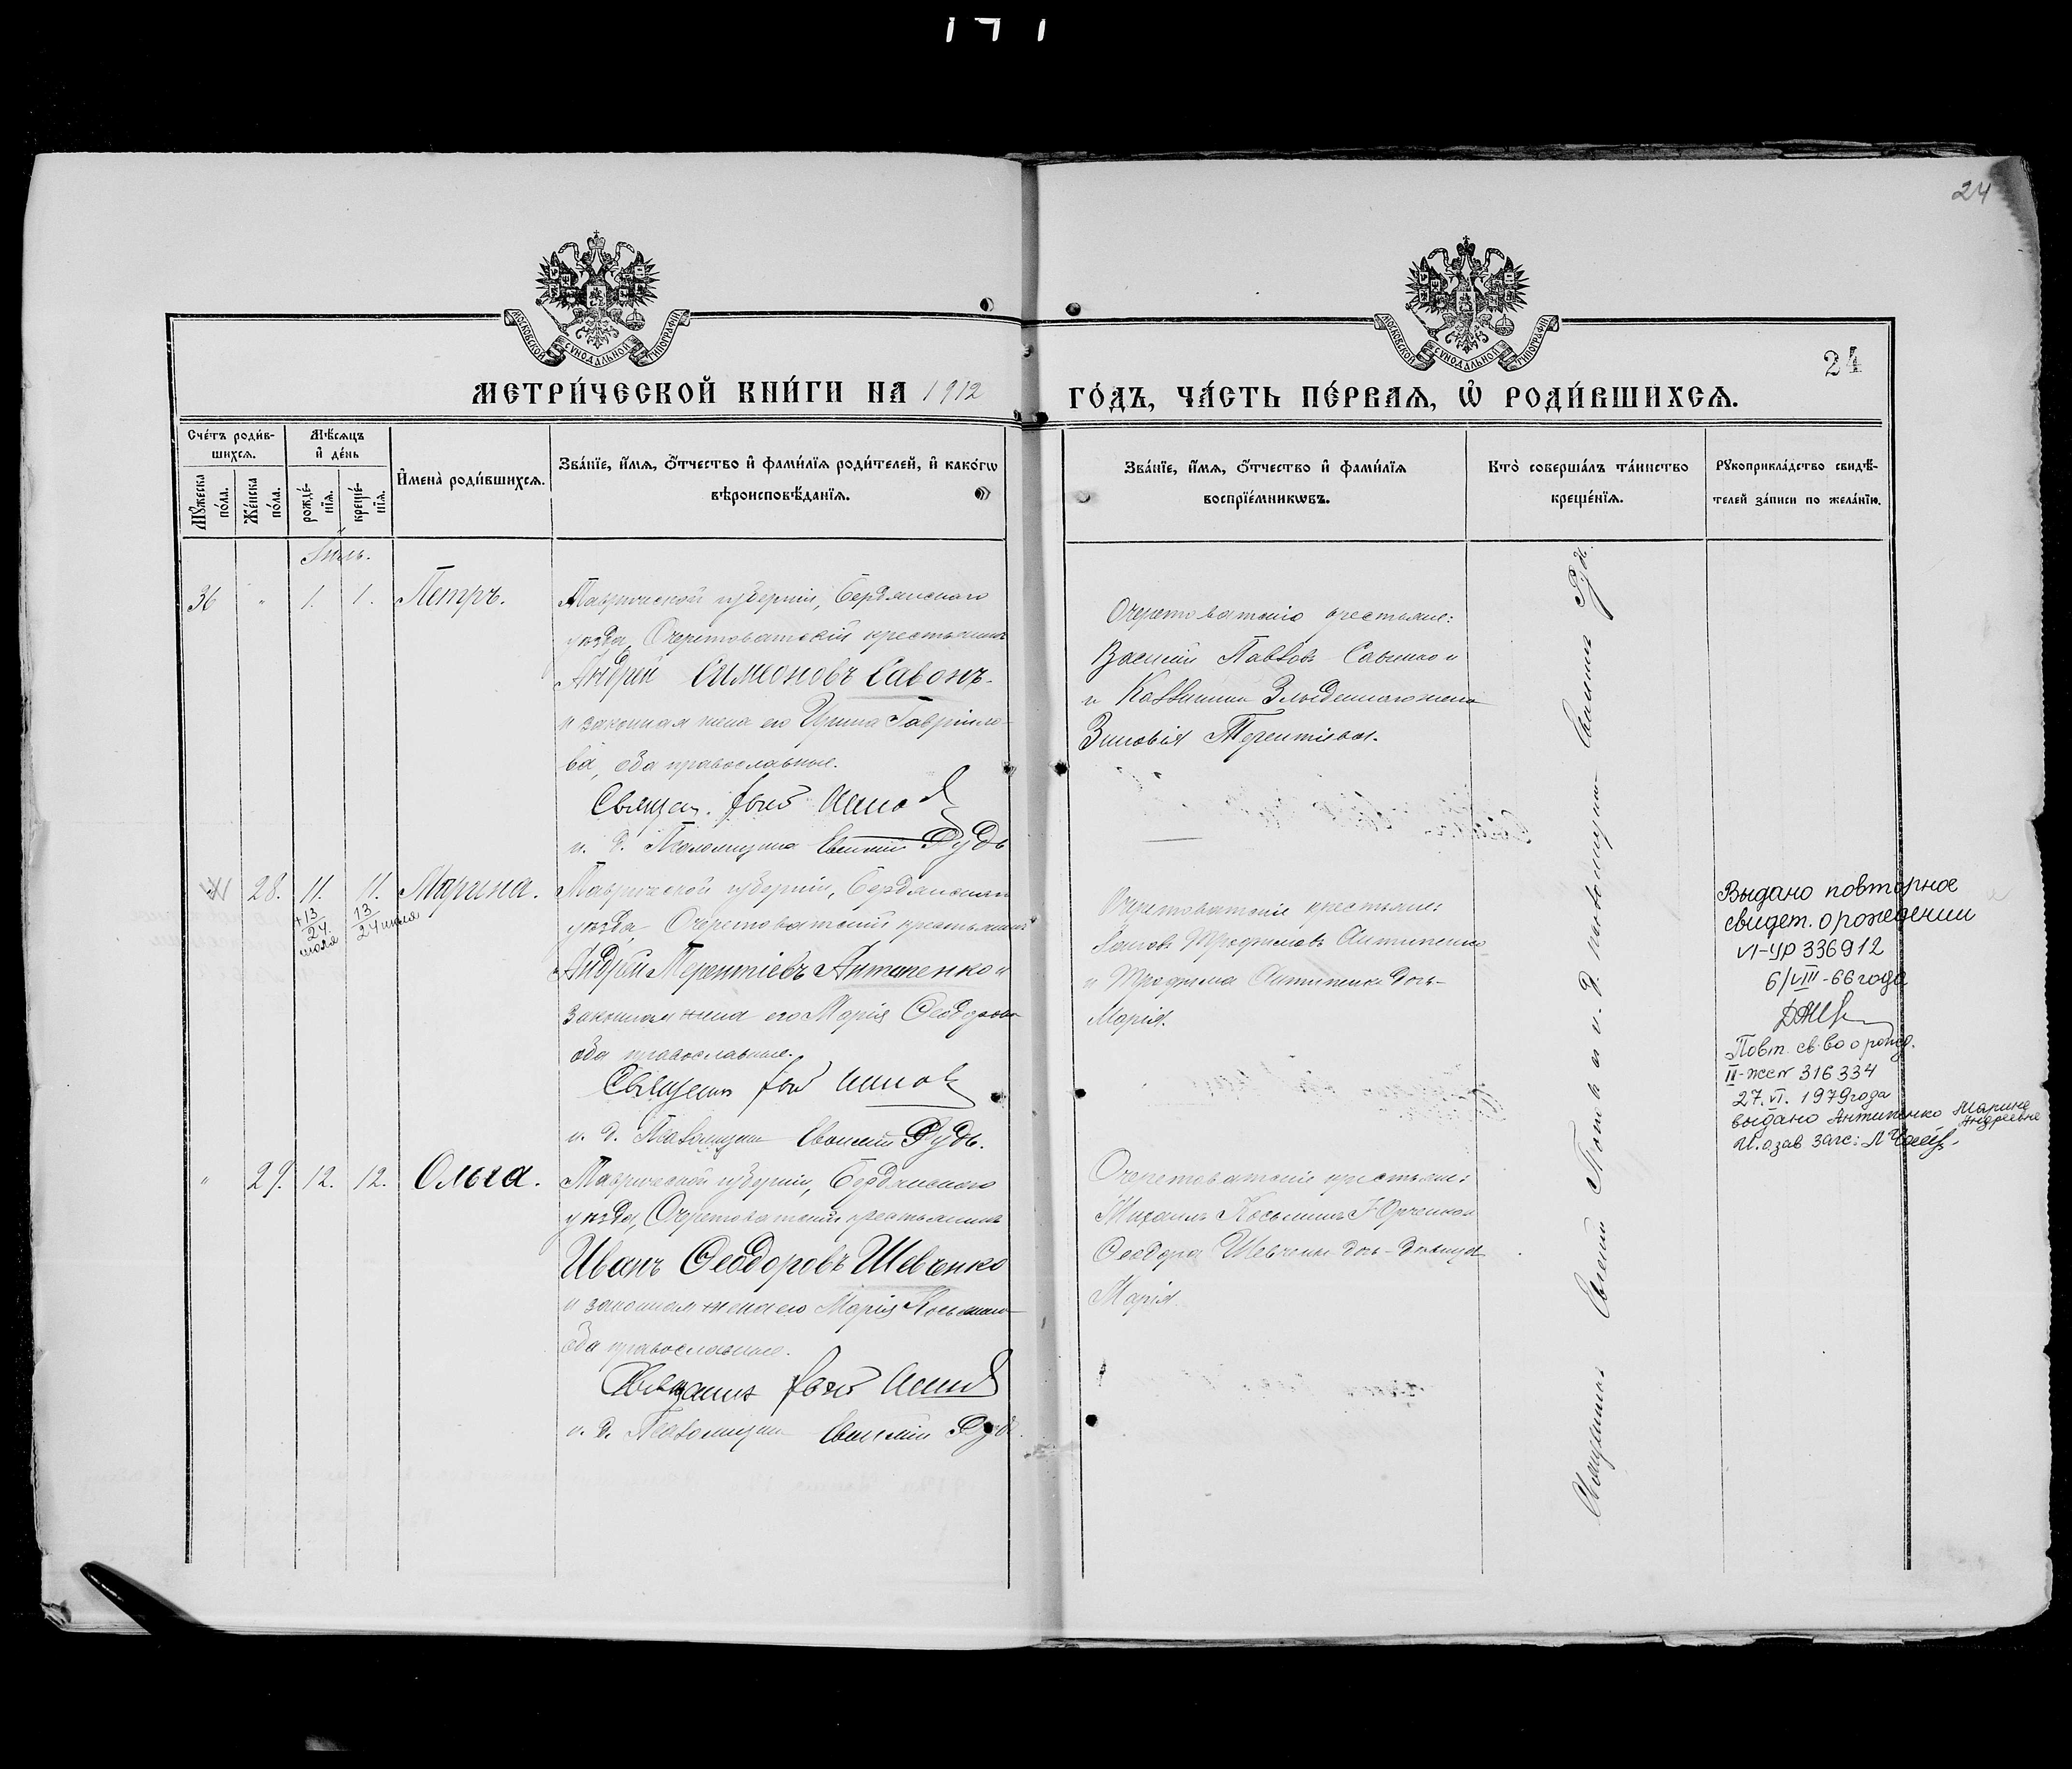 24
МОСКОВСКОЙ СУНОДАЛЬНОЙ ТИПОГРАФІИ
МОСКОВСКОЙ СУНОДАЛЬНОЙ ТИПОГРАФІИ
24
МЕТРИ́ЧЕСКОЙ КНИ́ГИ НА 1912
ГО́ДЪ, ЧА́СТЬ ПЕ́РВАѦ, Ѡ҆ РОДИ́ВШИХСѦ.
Сче́тъ роди́в-
шихсѧ.
Мꙋ́жеска по́ла.
Же́нска по́ла.
Мѣ́сѧцъ
и҆ де́нь
рожде́-
нїѧ.
креще́-
нїѧ.
И҆мена̀ роди́вшихсѧ.
Зва́нїе, и҆́мѧ, ѻ҆́тчество и҆ фамі́лїѧ роди́телей, и҆ како́гѡ
вѣроисповѣ́данїѧ.
Зва́нїе, и҆́мѧ, ѻ҆́тчество и҆ фамі́лїѧ
воспрїе́мникѡвъ.
Кто̀ соверша́лъ та́инство
креще́нїѧ.
Рꙋкоприкла́дство свидѣ́-
телей за́писи по жела́нїю.
Іюль.
36 " 1. 1. Петръ.
Таврической губерніи, Бердянскаго
уѣзда, Очеретоватскій крестьянинъ
Андрей Симеоновъ Савонъ
и законная жена его Ирина Гавріило-
ва, оба православные.
Священ.
и. д. Псаломщика Евгеній Рудь
Очеретоватскіе крестьяне:
Василій Павловъ Савенко и
и жена
Зиновія Терентіева.
28. 11. 11. Марина.
+13
24
июля
13
24 июля
Таврической губерніи, Бердянскаго
уѣзда Очеретоватскій крестьянинъ
Андрей Терентіевъ Антипенко и
законная жена его Марія Ѳеодорова
оба православные.
Священникъ
и. д. Псаломщика Евгеній Рудь.
Очеретоватскіе крестьяне:
Трофимовъ Антипенко
и Трофима Антипенка дочь-
Марія.
Выдано повторное
свидет. о рождении
VI-УР 336912
6/VIII-66 года
Повт. св-во о рожд.
II-ЖС № 316334
27. VI. 1979 года
выдано Антипенко Марине
Андреевне
И. о зав загс:
" 29. 12. 12. Ольга.
Таврической губерніи, Бердянскаго
уѣзда, Очеретоватскій крестьянинъ
Иванъ Ѳеодоровъ Шевченко
и законная жена его Марія Косьмина
оба православные.
Священникъ
и. д. Псаломщика Евгеній Рудь.
Очеретоватскіе крестьяне:
Михаилъ Косьминъ Юрченко и
Ѳеодора Шевченко дочь-дѣвица
Марія.
Священникъ и и. д. псаломщика Евгеній Рудь.